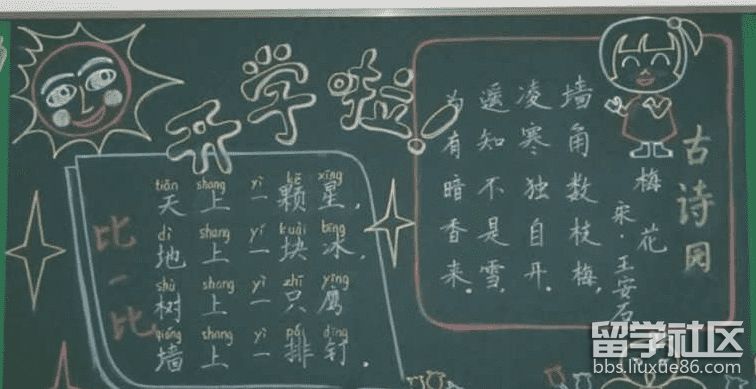 开学啦!
比一比
tiān shang yì kē xīng
天上一颗星,
dì shang yí kuài bīng
地上一块冰,
shù shang yì zhī yīng
树上一只鹰
qiáng shang yì pái dīng
墙上一排钉.
古诗园
梅花
宋·王安石
墙角数枝梅,
凌寒独自开.
遥知不是雪,
为有暗香来.
留学社区
bbs.liuxue86.com